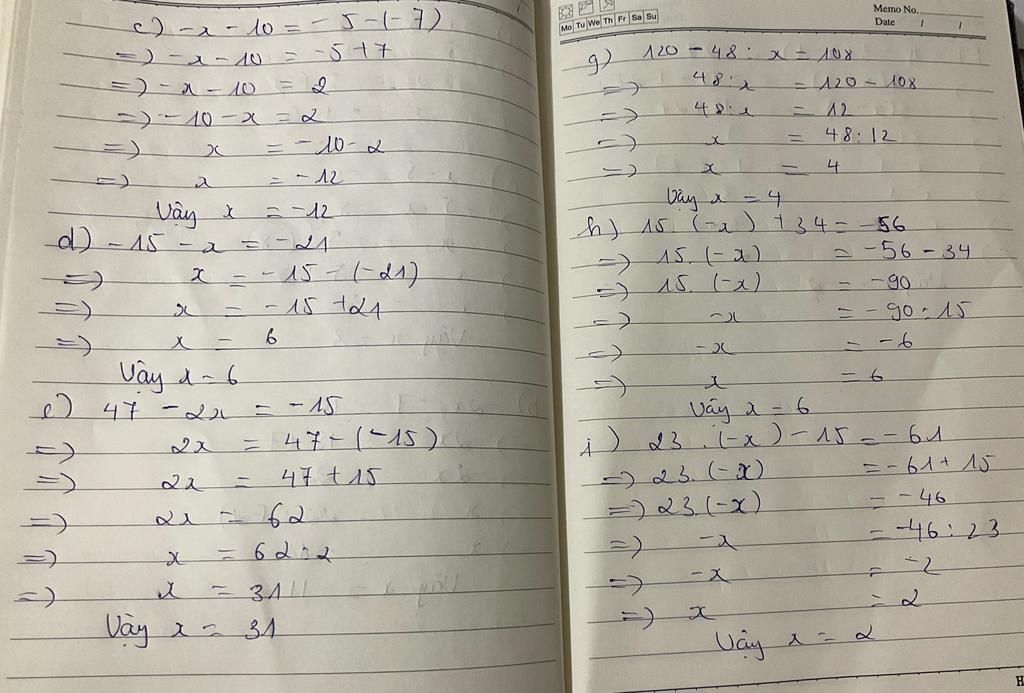 c) -x - 10 = -5 - (-7)
=) -x - 10 = -5 + 7
=) -x - 10 = 2
=) -10 - x = 2
=) x = -10 - 2
=) x = -12
Vậy x = -12
d) -15 - x = -21
=) x = -15 - (-21)
=) x = -15 + 21
=) x = 6
Vậy x = 6
e) 47 - 2x = -15
=) 2x = 47 - (-15)
=) 2x = 47 + 15
=) 2x = 62
=) x = 62 : 2
=) x = 31
Vậy x = 31
Mo Tu We Th Fr Sa Su
Memo No.
Date / /
g) 120 - 48 : x = 108
=) 48 : x = 120 - 108
=) 48 : x = 12
=) x = 48 : 12
=) x = 4
Vậy x = 4
h) 15. (-x) + 34 = -56
=) 15. (-x) = -56 - 34
=) 15. (-x) = -90
=) -x = -90 : 15
=) -x = -6
=) x = 6
Vậy x = 6
i) 23 . (-x) - 15 = -61
=) 23. (-x) = -61 + 15
=) 23. (-x) = -46
=) -x = -46 : 23
=) -x = -2
=) x = 2
Vậy x = 2